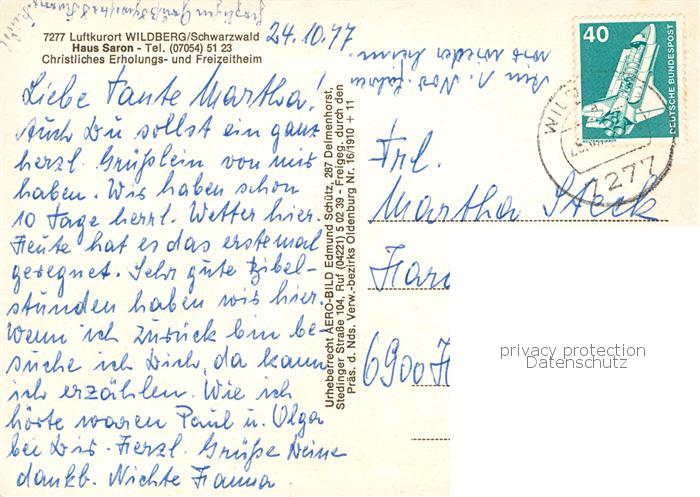 7277 Luftkurort WILDBERG/Schwarzwald
Haus Saron - Tel. (07054) 51 23
Christliches Erholungs- und Freizeitheim
24.10.77
Liebe Tante Martha!
Auch Du sollst ein ganz
herzl. Grüßlein von mir
haben. Wir haben schon
10 Tage herrl. Wetter hier.
Heute hat es das erstemal
geregnet. Sehr gute Bibel-
stunden haben wir hier.
Wenn ich zurück bin be-
suche ich Dich, da kann
ich erzählen. Wie ich
hörte waren Paul u. Olga
bei Dir. Herzl. Grüße Deine
dankb. Nichte Hanna
1. Nov. fahren
wir wieder heim.
Urheberrecht AERO-BILD Edmund Schütz, 287 Delmenhorst,
Stedinger Straße 104, Ruf (04221) 5 02 39 - Freigeg. durch den
Präs. d. Nds. Verw.-bezirks Oldenburg Nr. 16/1910 + 11
40
DEUTSCHE BUNDESPOST
WILD
7277
Frl.
Martha Steck
6900 H
privacy protection
Datenschutz